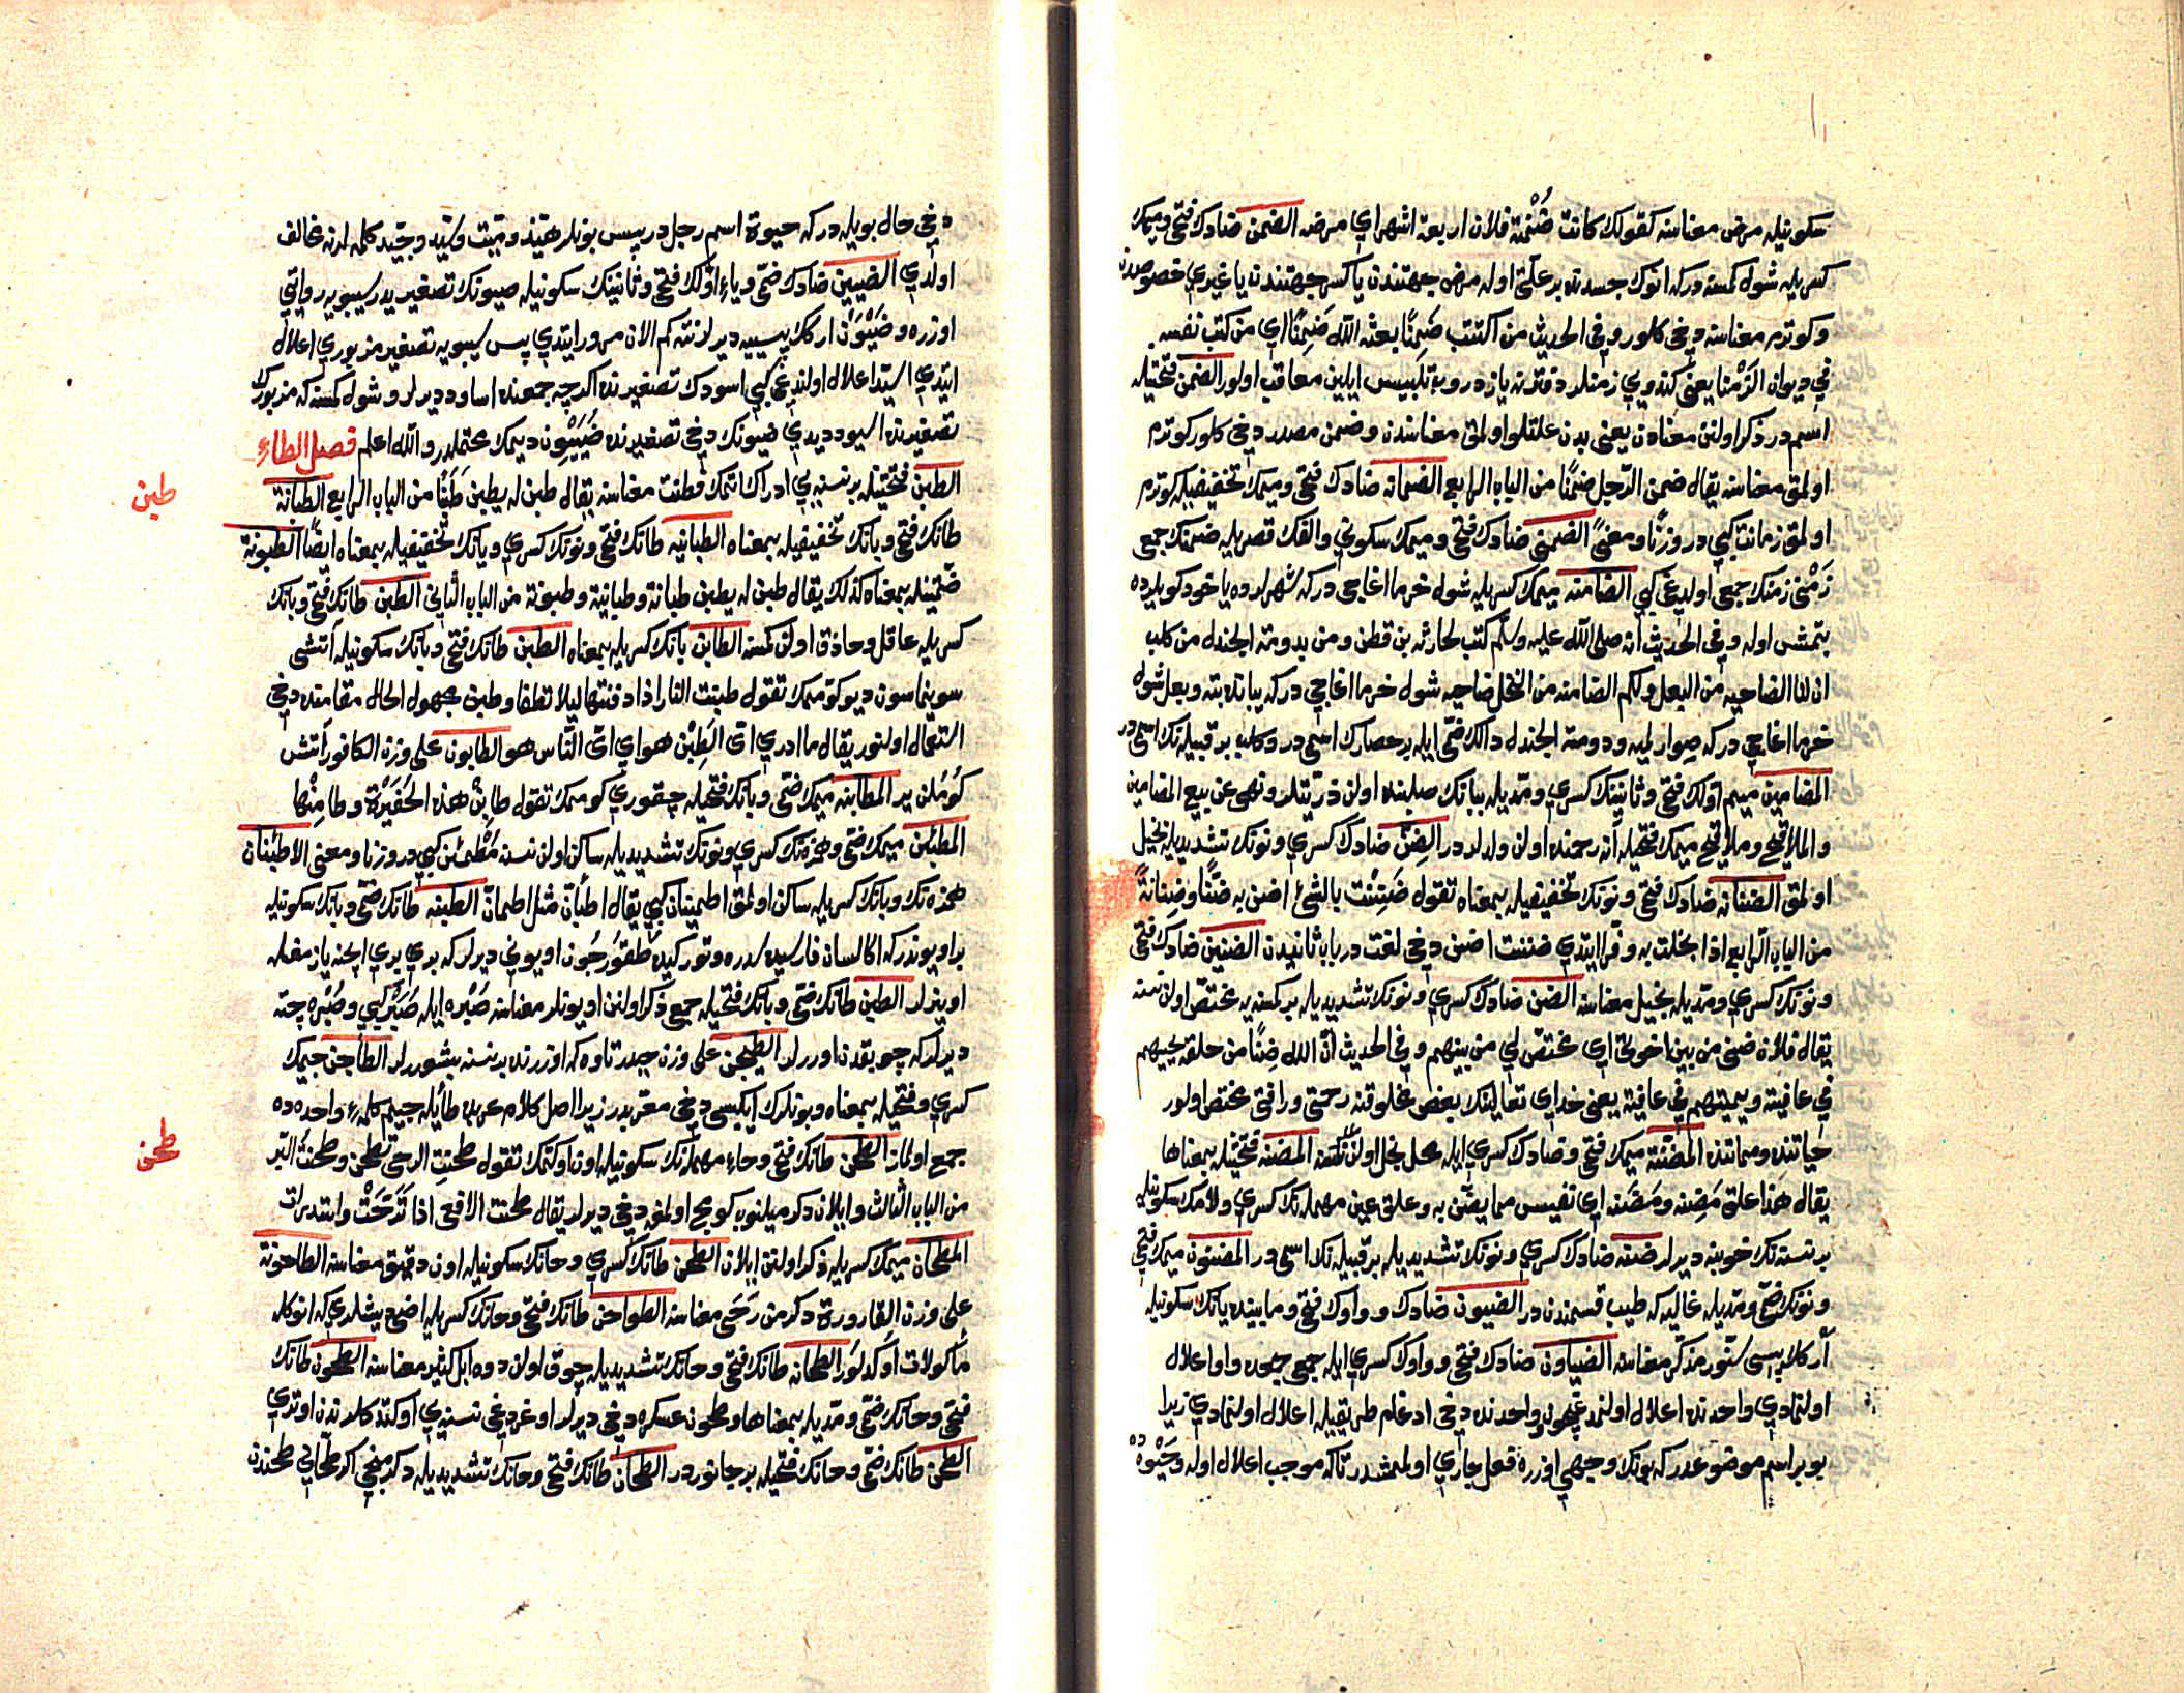 سكونیله مرض معناسنه كقولك كانت ضُمْنة فلان اربعة اشهر اي مرضه الضمن ضادك فتحی و میمك
كسریله شول كمسنه در كه انوك جسدنده بر علّتی اوله مرض جهتندن یا كبر جهتندن یا غیری خصوصدن
و كوترم معناسنه دخی كلور و فی الحدیث من اكتتب ضَمِنًا بعثه الله ضَمِنًا ای من كتب نفسه
فی دیوان الزَمْنا یعنی كندویی زمنلر دفترنه یازدروب تلبیس ایلین معاقب اولور الضمن فتحتیله
اسم در ذكر اولنن معنادن یعنی بدن علتلو اولمق معناسندن و ضمن مصدر دخی كلور كوترم
اولمق معناسنه یقال ضمن الرّجل ضمنًا من الباب الرابع الضمانه ضادك فتحی و میمك تخفیفیله كوترم
اولمق زمانت كبی در وزنًا و معنیً الضمنی ضادك فتحی و میمك سكونی و الفك قصریله ضمنك جمعی
زَمْنی زمنك جمعی اولدیغی كبی الضامنه میمك كسریله شول خرما اغاجی در كه شهرلرده یاخود كویلرده
بتمش اوله و فی الحدیث انه صلی الله علیه و سلّم كتب لحارثه بن قطن و من بدومة الجندل من كلب
ان لنا الضاحیه من البعل و لكم الضامنه من النخل ضاحیه شول خرما اغاجی در كه یبانده بته و بعل شول
خرما اغاجی در كه صوارلمیه و دومة الجندل دالك ضمّی ایله بر حصارك اسمی در و كلب بر قبیله نك اسمی در
المضامین میم اوّلك فتحی و ثانینك كسری و مدّیله ببانك صلبنده اولن ذرّیتلر و نهی عن بیع المضامین
و الملاقیح و ملاقیح میمك فتحیله آنه رحمنده اولن ولدلر در الضِنّ ضادك كسری و نونك تشدیدیله بخیل
اولمق الضنانه ضادك فتحی و نونك تخفیفیله بمعناه تقول ضَنِنْت بالشئ اضنّ به ضنًّا و ضنانةً
من الباب الرّابع اذا بخلت به و فرّا ایتدی ضننت اضنّ دخی لغت در باب ثانیدن الضنین ضادك فتحی
و نونك كسری و مدّیله بخیل معناسنه الضنّ ضادك كسری و نونك تشدیدیله بر كمسنه یه مختصّ اولن نسنه
یقال فلان ضنی من بین اخوتی ای مختصّ لی من بینهم و فی الحدیث انّ لله ضِنًّا من خلقه یحییهم
فی عافیة و یمیتهم فی عافیة یعنی خدای تعالینك بعض مخلوقنه رحمتی و رافتی مختصّ اولور
حیاتنده و مماتنده المضنّة میمك فتحی و ضادك كسری ایله محل بخل اولن نسنه المضنه فتحتیله بمعناها
یقال هذا علق مَضِنه و مَضَنه ای نفیس مما یضنّ به و علق عین مهمله نك كسری و لامك سكونیله
بر نسنه نك خوبنه دیرلر ضنه ضادك كسری و نونك تشدیدیله بر قبیله نك اسمی در المضنون میمك فتحی
و نونك ضمّی و مدّیله غالیه كه طیب قسمندن در الضیون ضادك و واوك فتحی و مابینده یانك سكونیله
اركك پیسی سنّور مذكّر معناسنه الضیاون ضادك فتحی و واوك كسری ایله جمعی جمعده واو اعلال
اولنمادی واحدنده اعلال اولنمدغیچون و واحدنده دخی ادغام طریقیله اعلال اولنمادی زیرا
بو بر اسم موضوعدر كه بونك وجهی اوزره فعل جاری اولممشدر تاكه موجب اعلال اوله و حَیْوَه ده
دخی حال بویله در كه حیوة اسم رجل در پس بونلر هیّن و میّت و سیّد و جیّد كلمه لرنه مخالف
اولدی الضیین ضادك ضمّی و یاء اوّلك فتحی و ثانینك سكونیله ضیونك تصغیریدر سیبویه روایتی
اوزره و ضَیْوَن اركك پیسییه دیرلر نته كم الان مرور ایتدی پس سیبویه تصغیر مزبوری اعلال
ایتدی اسیّد اعلال اولندیغی كبی اسودك تصغیرنده اكرچه جمعنده اساود دیرلر و شول كمسنه كه مزبورك
تصغیرنده اسیود دیدی ضیونك دخی تصغیرنده ضُیَیْوِن دیمك محتملدر و الله اعلم فصل الطاء
الطبن فتحتیله بر نسنه یی ادراك اتمك فطنت معناسنه یقال طبن له یطبن طَبَنًا من الباب الرابع الطبانة
طانك فتحی و بانك تخفیفیله بمعناه الطبانیه طانك فتحی و نونك كسری و یانك تخفیفیله بمعناه ایضًا الطبونة
ضمّتیله بمعناه كذلك یقال طبن له یطبن طبانة و طبانیة و طبونة من الباب الثانی الطبن طانك فتحی و بانك
كسریله عاقل و حاذق اولن كمسنه الطابن بانك كسریله بمعناه الطبن طانك فتحی و بانك سكونیله آتشی
سوینماسون دیو كومك تقول طبنت النار اذا دفنتها لیلا تطفا و طبن مجهول الحال مقامنده دخی
استعمال اولنور یقال ما ادری ایّ الطَبْن هو ای ایّ النّاس هو الطابون علی وزن الكافور آتش
كوملن یر المطابنه میمك ضمّی و بانك فتحیله چقوری كومك تقول طابِنْ هذه الحُفَیْرَة و طامِنْها
المطبئن میمك ضمّی و همزه نك كسری و نونك تشدیدیله ساكن اولن نسنه مُطْمَئن كبی در وزنا و معنی الاطبئنان
همزه نك و بانك كسریله ساكن اولمق اطمینان كبی یقال اطبأنّ مثل اطمانّ الطبنه طانك ضمّی و بانك سكونیله
بر اویوندر كه اكا لسان فارسیده سدره و توركیده طقوزجون اویونی دیرلر كه بری بری ایچنه یازمغله
اوینرلر الطبن طانك ضمّی و بانك فتحیله جمعی ذكر اولنن اویونلر معناسنه صَبْره ایله صَبَر كبی و صُبْره چته
دیرلر كه چوبقدن اوررلر الطیجن علی وزن حیدر تاوه كه اوزرنده نسنه بشوررلر الطاجن جیمك
كسری و فتحیله بمعناه و بونلرك ایكیسی دخی معرّبدر زیرا اصل كلام عربده طا ایله جیم كلمه واحده ده
جمع اولماز الطحن طانك فتحی و حاء مهمله نك سكونیله اون اوكتمك تقول طحنتِ الرحی تطحن و طحنتُ البرّ
من الباب الثالث و ایلان دكرمیلنوب كویجه اولمغه دخی دیرلر یقال طحنت الافعی اذا تَرَحّتْ و استدارت
المطحان میمك كسریله ذكر اولنن ایلان الطحن طانك كسری و حانك سكونیله اون دقیق معناسنه الطاحونة
علی وزن القارورة دكرمن رَحَی معناسنه الطواحن طانك فتحی و حانك كسریله اضی دیشلری كه انوكله
مأكولات اوكدلور الطحانه طانك فتحی و حانك تشدیدیله چوق اولن دوه ابل كثیر معناسنه الطحون طانك
فتحی و حانك ضمّی و مدّیله بمعناها و طحون عسكره دخی دیرلر اوغردیغی نسنه یی اوكدكلرندن اوتری
الطحن طانك ضمّی و حانك فتحیله بر جانور در الطحّان طانك فتحی و حانك تشدیدیله دكرمنجی اكر طحّانی طحندن
طبن
طحن